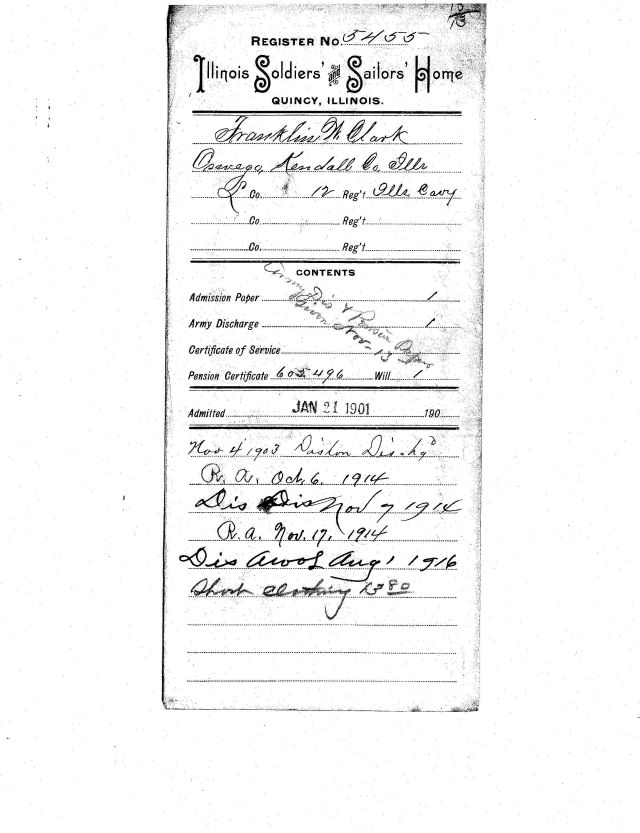 10/13
REGISTER No. 5455
Illinois Soldiers' and Sailors' Home
QUINCY, ILLINOIS.
Franklin W. Clark
Oswego, Kendall Co. Ills
L Co. 12 Reg't Ills Cavy
Co. Reg't
Co. Reg't
CONTENTS
Army Dis & Pension Papers
Given Nov-13
Admission Paper 1
Army Discharge 1
Certificate of Service
Pension Certificate 605.496 Will 1
Admitted JAN 21 1901 190
Nov 4 1903 Dis-hg'd
R. A. Oct. 6. 1914
Dis Dis Nov 7 1914
R. a. Nov. 17. 1914
Dis Awol Aug 1 1916
Short clothing 380